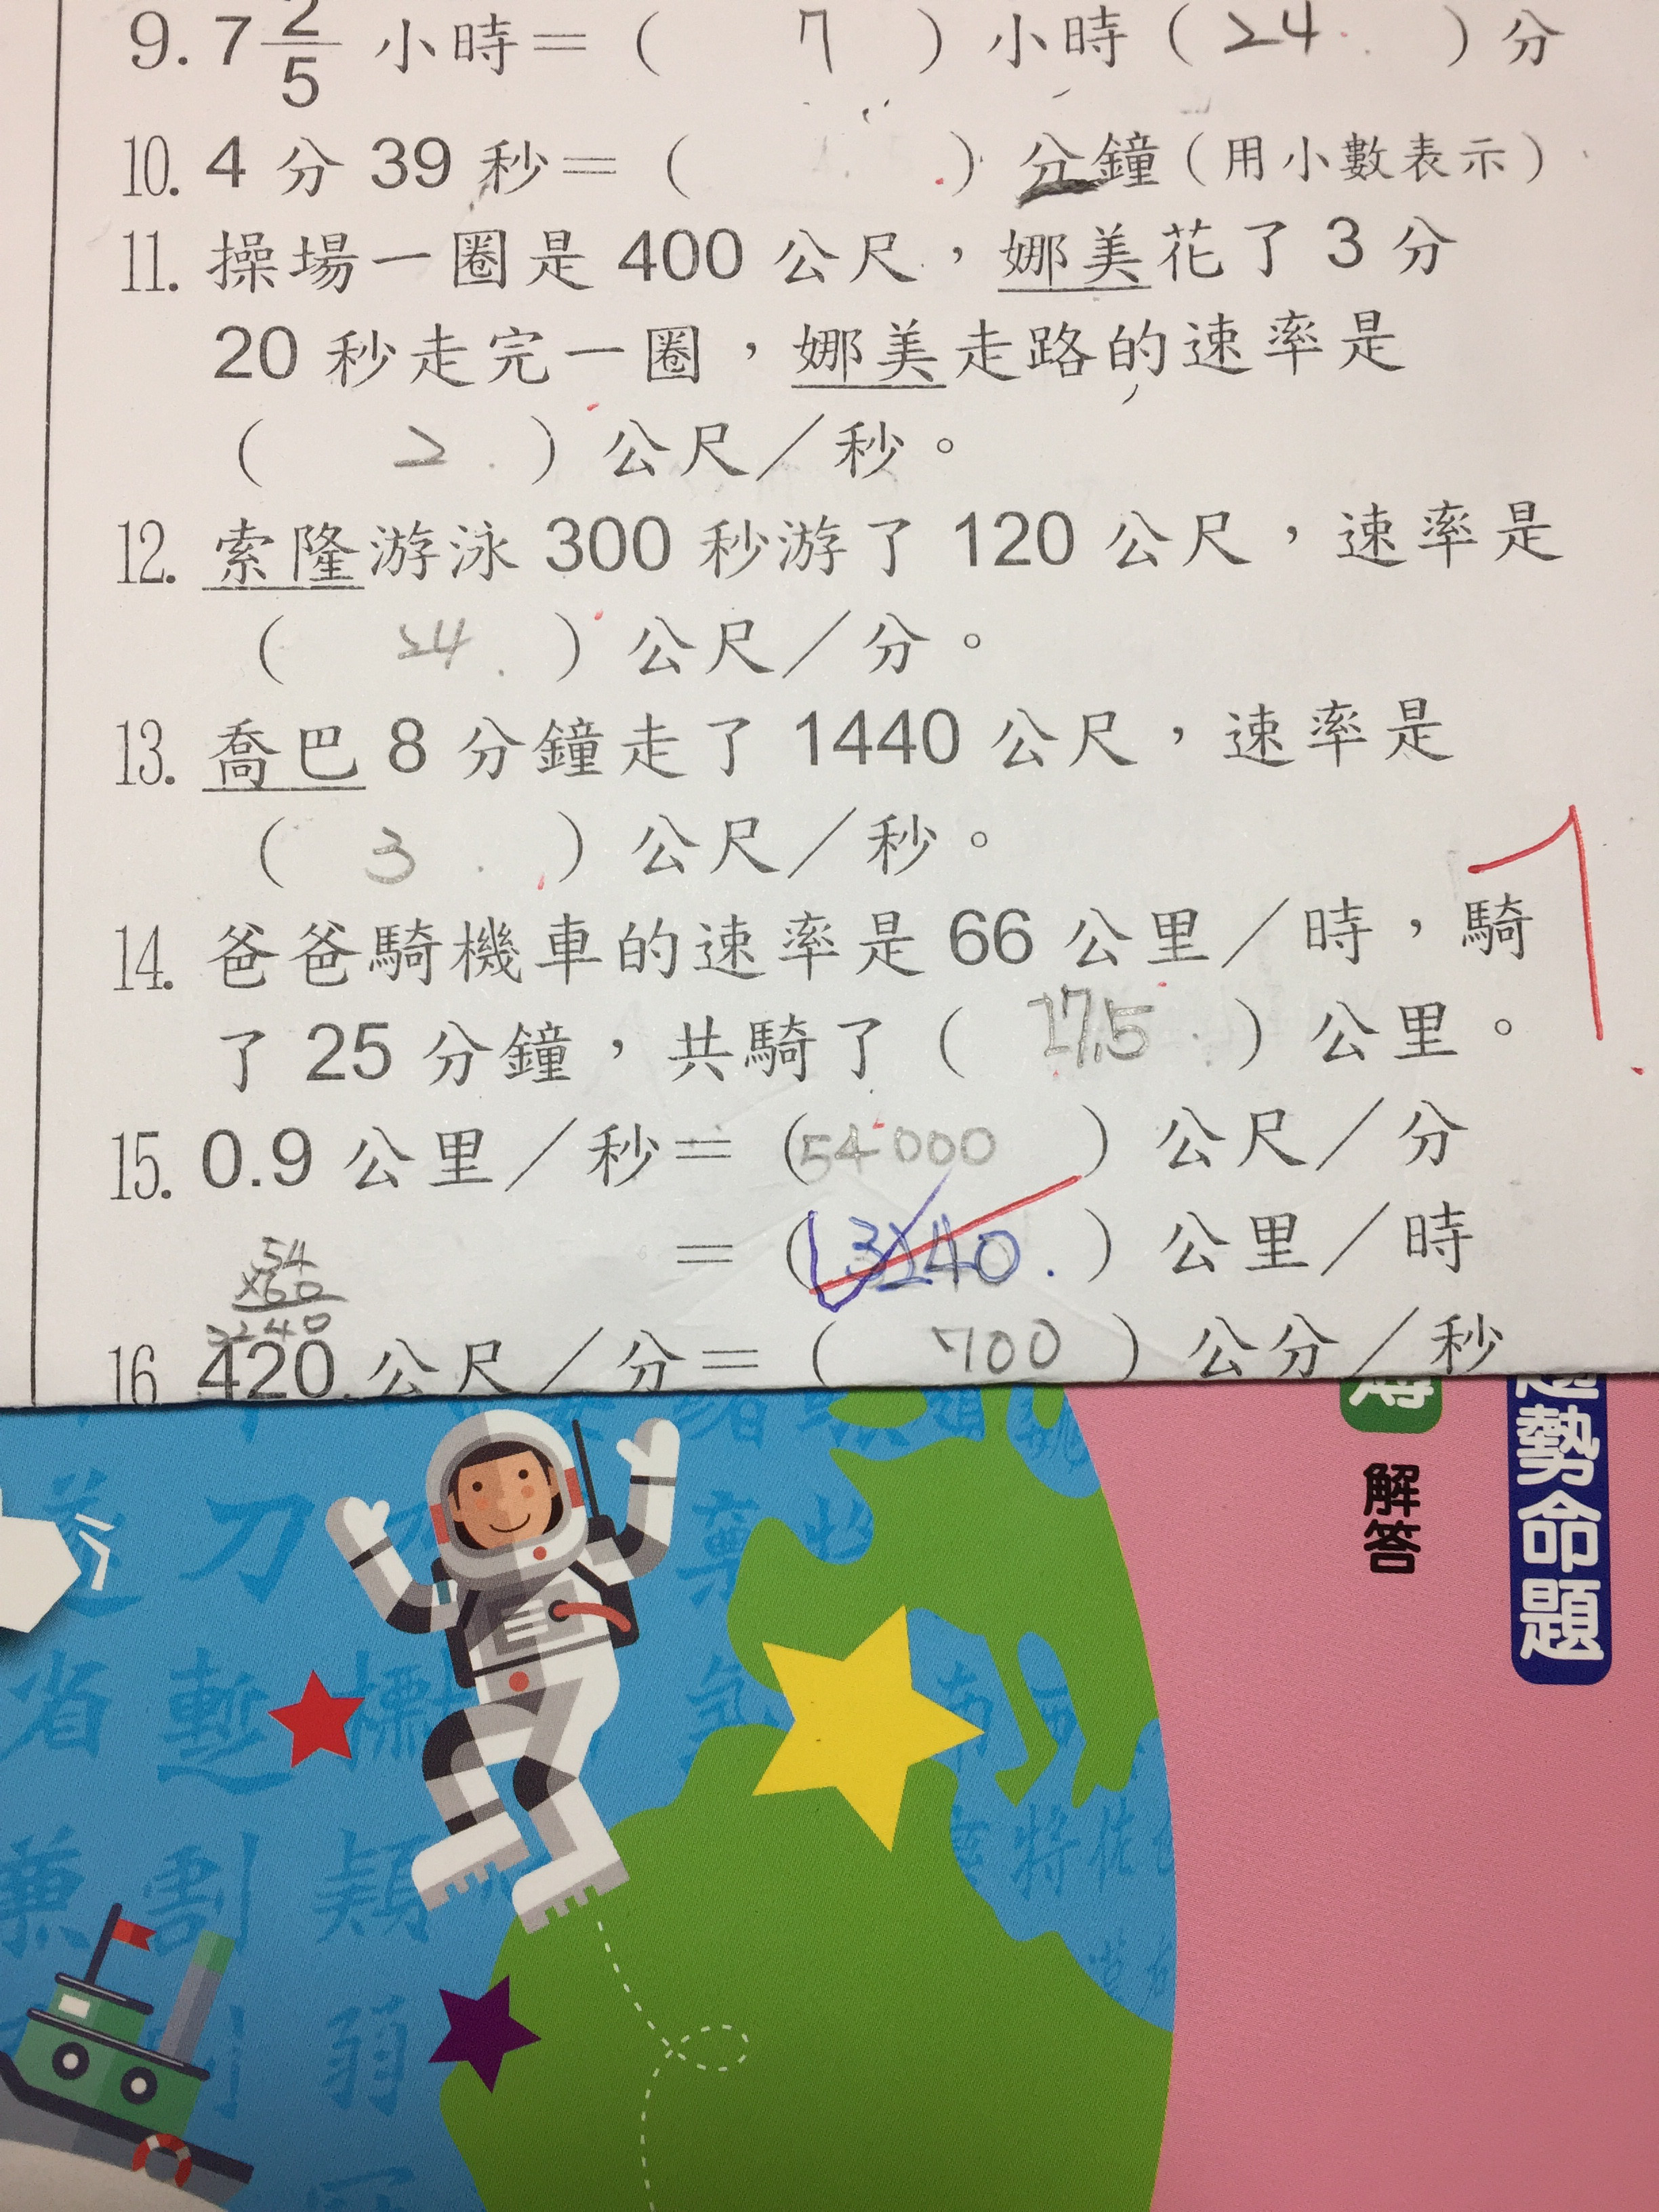 9. 7 2/5 小時＝（ 7 ）小時（ 24 ）分
10. 4 分 39 秒＝（ ）分鐘（用小數表示）
11. 操場一圈是 400 公尺，娜美花了 3 分
20 秒走完一圈，娜美走路的速率是
（ 2 ）公尺／秒。
12. 索隆游泳 300 秒游了 120 公尺，速率是
（ 24 ）公尺／分。
13. 喬巴 8 分鐘走了 1440 公尺，速率是
（ 3 ）公尺／秒。
14. 爸爸騎機車的速率是 66 公里／時，騎
了 25 分鐘，共騎了（ 27.5 ）公里。
15. 0.9 公里／秒＝（54000 ）公尺／分
＝（ 3240 ）公里／時
54
×60
3240
16 420 公尺／分＝（ 700 ）公分／秒
解答
趨勢命題
刀
省 暫 標
南
兼 割 穎
將
弱